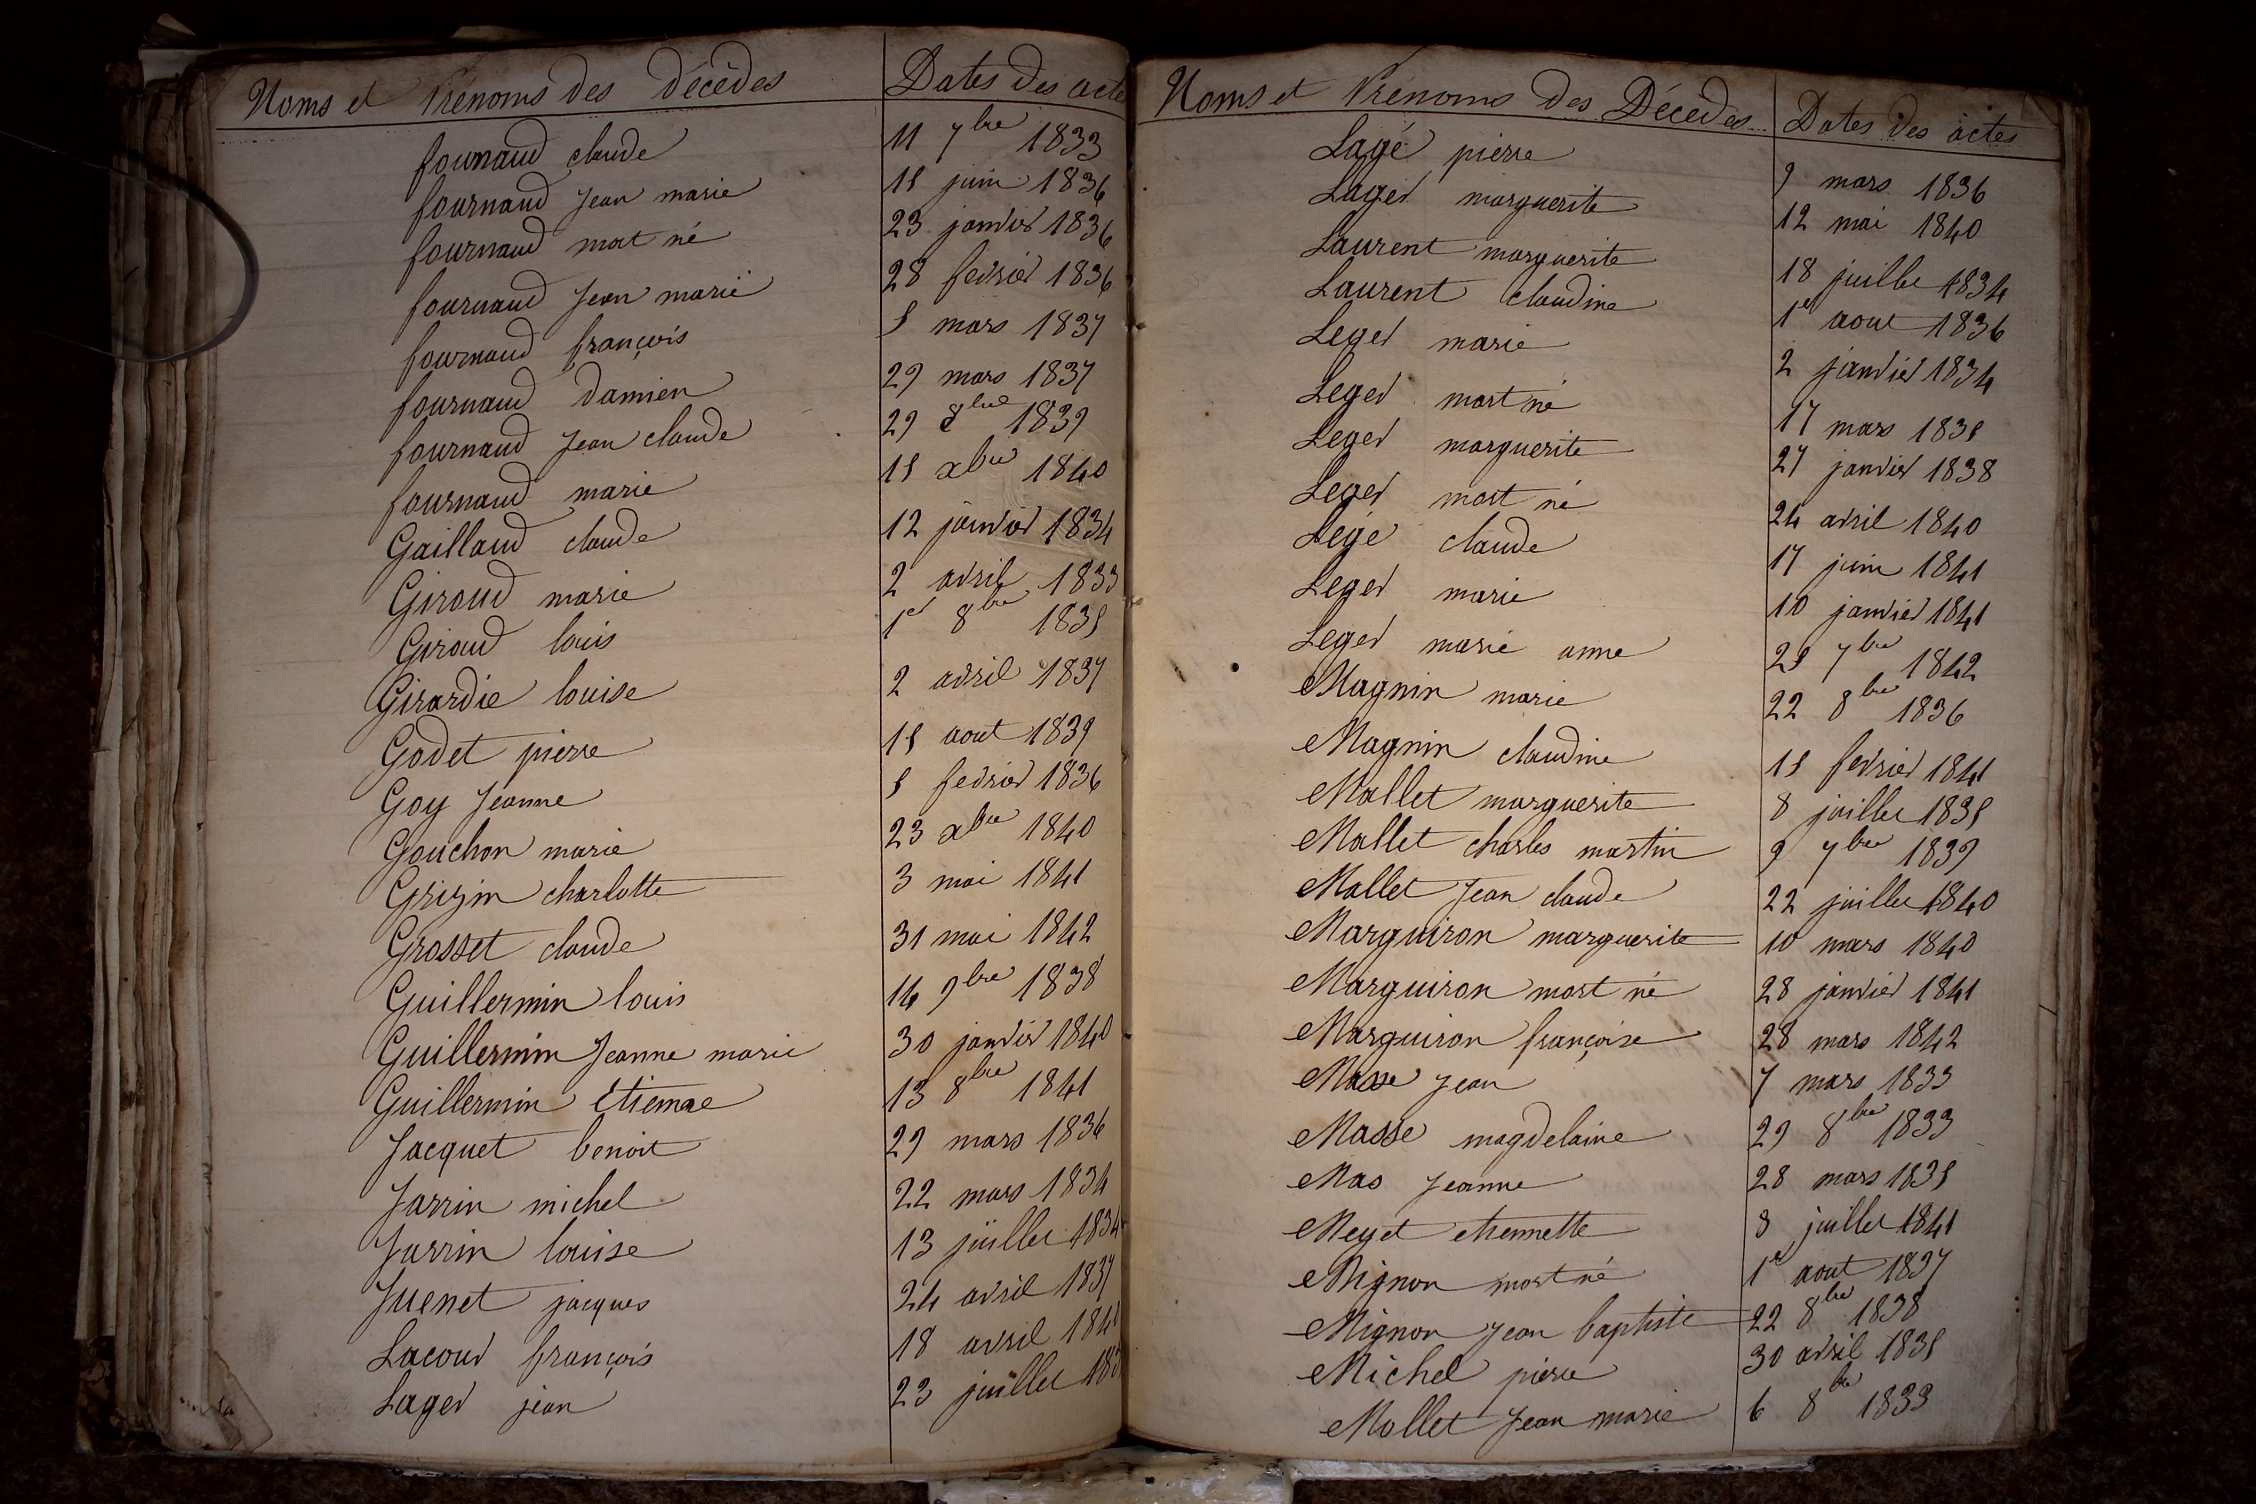 Noms et Prénoms des Décédés Dates des acte
fournaud claude 11 7bre 1833
fournaud Jean marie 15 juin 1836
fournaud mort né 23 janvier 1836
fournaud Jean marie 28 fevrier 1836
fournaud françois 5 mars 1837
fournaud Damien 29 mars 1837
fournaud Jean claude 29 8bre 1839
fournaud marie 15 xbre 1840
Gailland claude 12 janvier 1834
Giroud marie 2 avril 1833
Giroud louis 1er 8bre 1835
Girardie louise 2 avril 1837
Godet pierre 15 aout 1839
Goy Jeanne 5 fevrier 1836
Gouchon marie 23 xbre 1840
charlotte 3 mai 1841
Grosset claude 31 mai 1842
Guillermin louis 14 9bre 1838
Guillermin Jeanne marie 30 janvier 1840
Guillermin Etienne 13 8bre 1841
Jacquet benoit 29 mars 1836
Jarrin michel 22 mars 1834
Jarrin louise 13 juillet 1834
Juenet jacques 24 avril 1837
Lacour françois 18 avril
Lager jean 23 juillet
Noms et Prénoms des Décédés Dates des actes
Lagé pierre 9 mars 1836
Lager marguerite 12 mai 1840
Laurent marguerite 18 juillet 1834
Laurent claudine 1er aout 1836
Leger marie 2 janvier 1834
Leger mort né 17 mars 1835
Leger marguerite 27 janvier 1838
Leger mort né 24 avril 1840
Legé claude 17 juin 1841
Leger marie 10 janvier 1841
Leger marie anne 25 7bre 1842
Magnin marie 22 8bre 1836
Magnin claudine 15 fevrier 1841
Mallet marguerite 8 juillet 1835
Mallet charles martin 9 7bre 1839
Mallet Jean claude 22 juillet 1840
Marguiron marguerite 10 mars 1840
Marguiron mort né 28 janvier 1841
Marguiron françoise 28 mars 1842
Masse Jean 7 mars 1833
Masse magdelaine 29 8bre 1833
Mas Jeanne 28 mars 1835
Meyet etiennette 3 juillet 1841
Mignon mort né 1er aout 1837
Mignon Jean baptiste 22 8bre 1838
Michel pierre 30 avril 1835
Mollet Jean marie 6 8bre 1833